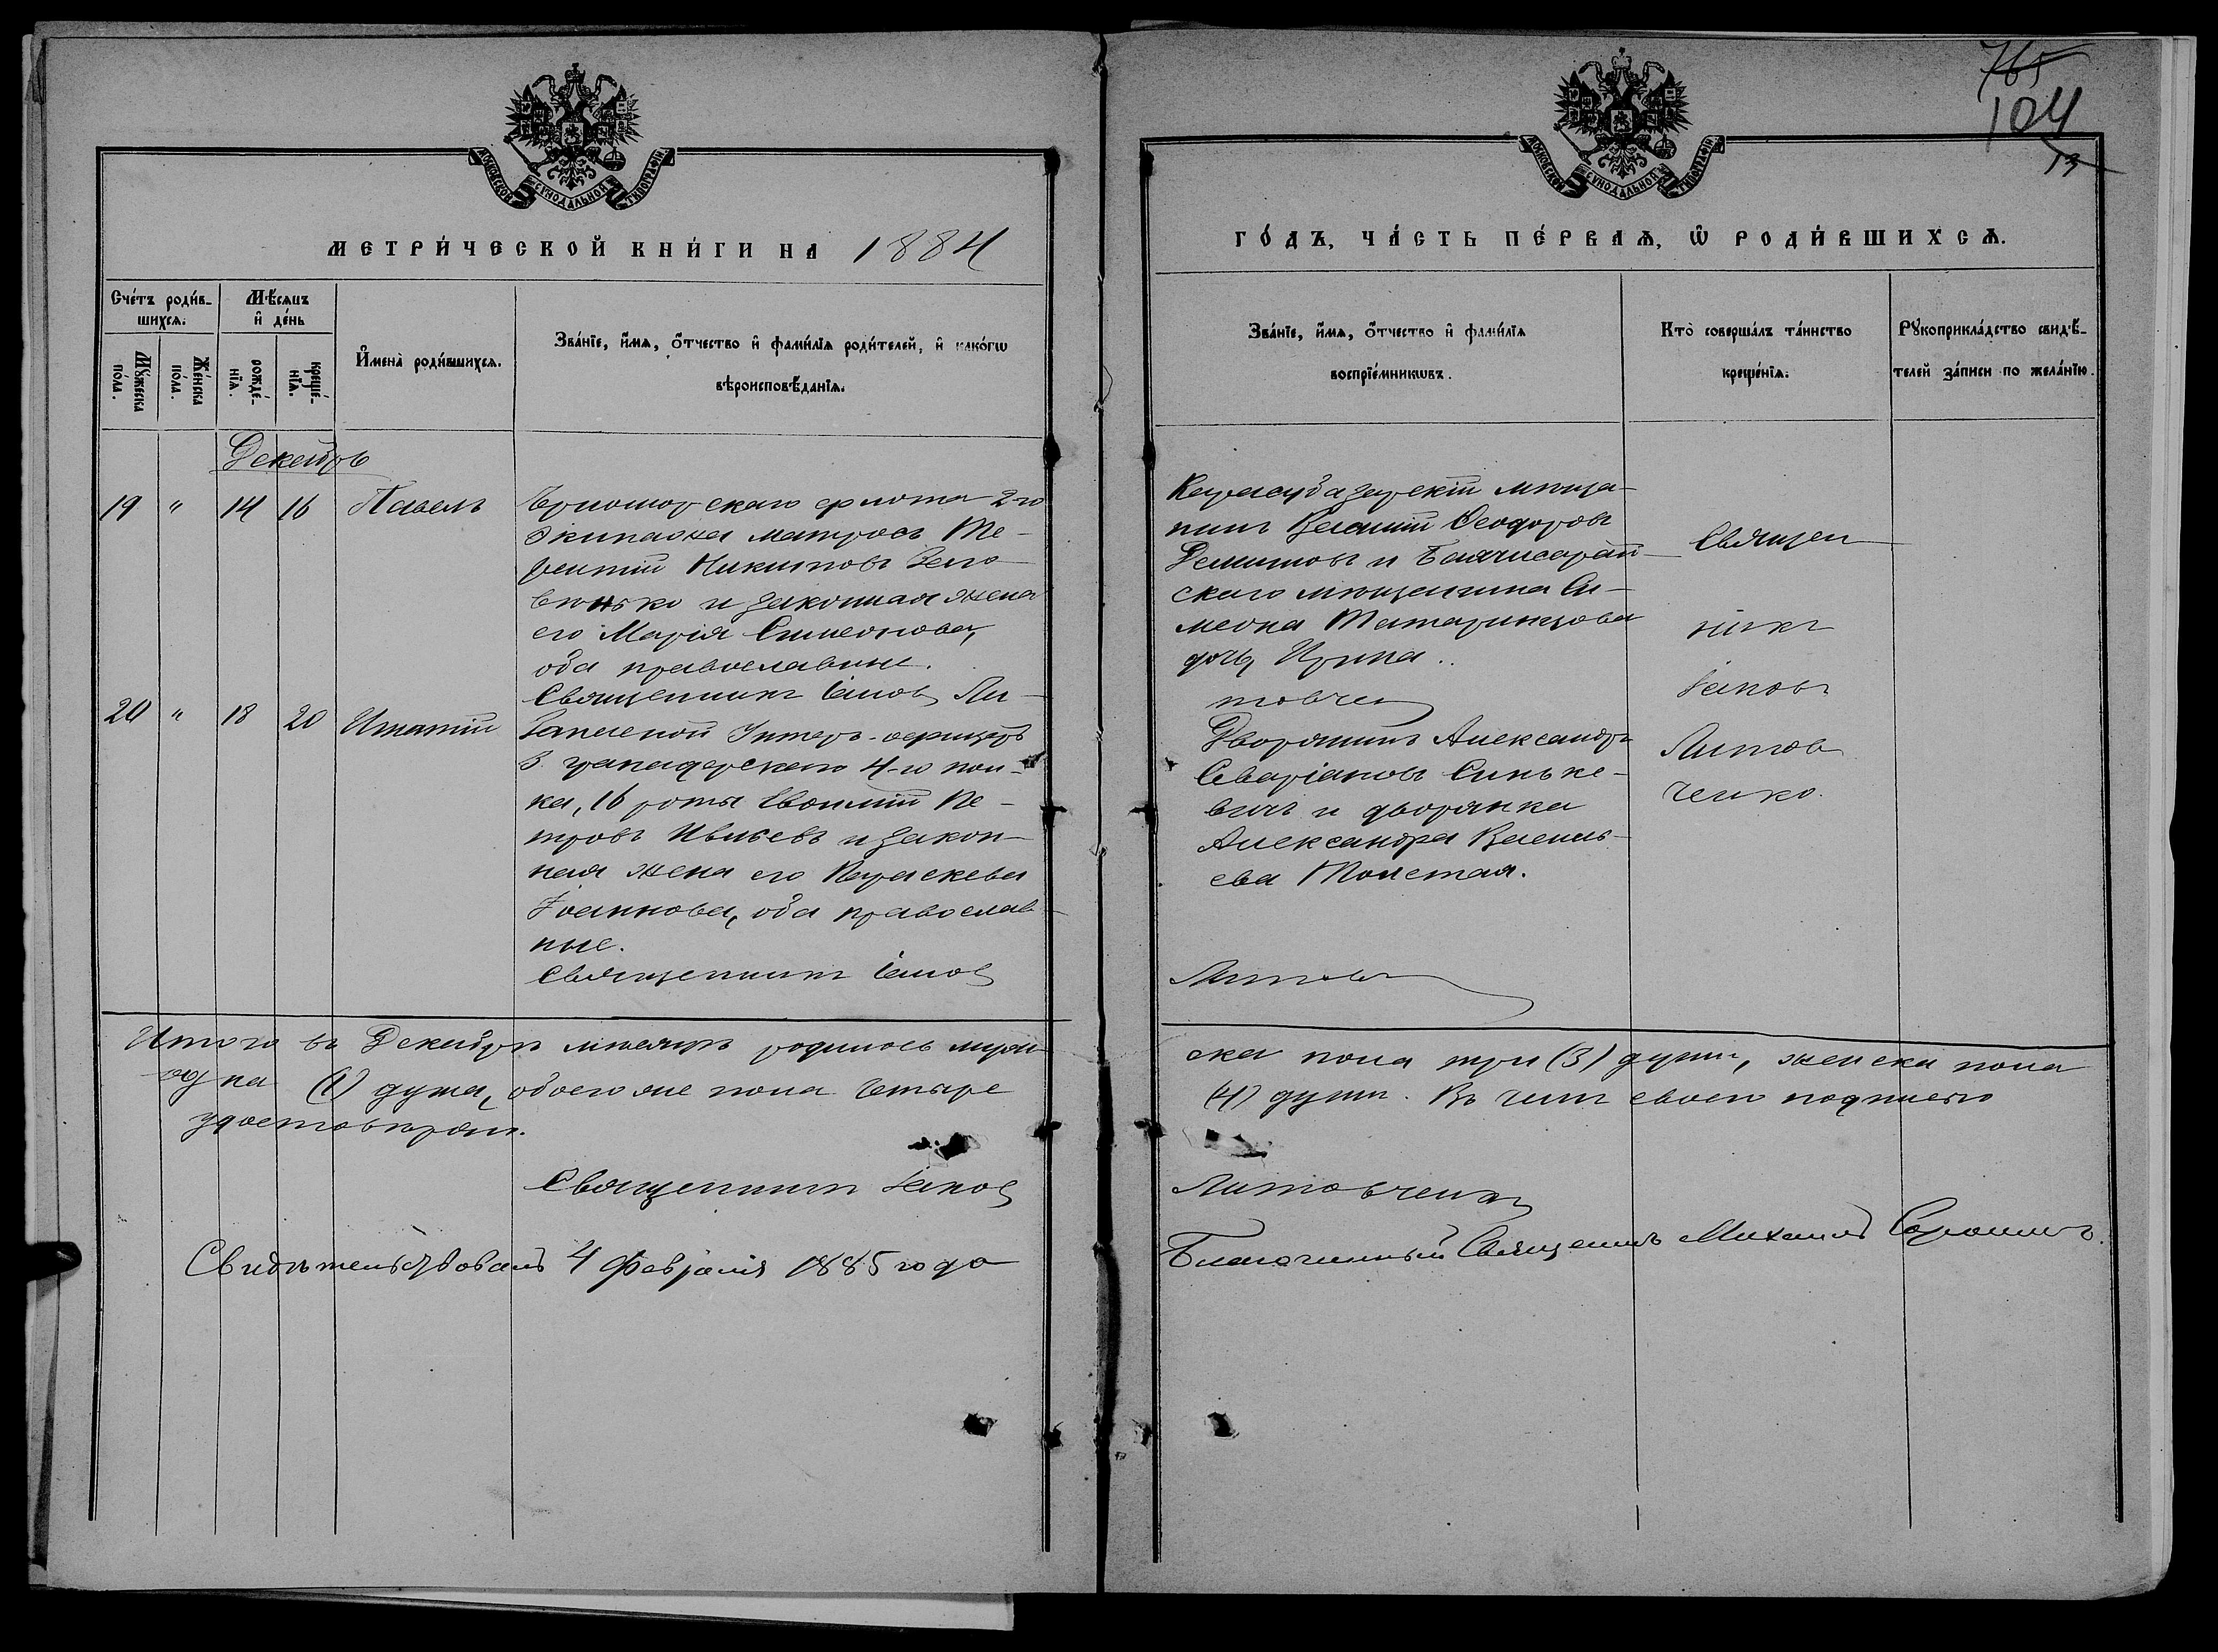 765
104
13
МОСКОВСКОЙ СѴНОДАЛЬНОЙ ТИПОГРАФІИ
МОСКОВСКОЙ СѴНОДАЛЬНОЙ ТИПОГРАФІИ
МЕТРИ́ЧЕСКОЙ КНИ́ГИ НА 1884
ГО́ДЪ, ЧА́СТЬ ПЕ́РВАѦ, Ѡ РОДИ́ВШИХСѦ.
Сче́тъ роди́в-
шихсѧ.
Мѣ́сѧцъ
и де́нь
Мꙋ́жеска
по́ла.
Же́нска
по́ла.
рожде́-
нїѧ.
креще́-
нїѧ.
Имена̀ роди́вшихсѧ.
Зва́нїе, и́мѧ, о́тчество и фами́лїѧ роди́телей, и како́гѡ
вѣроисповѣ́данїѧ.
Зва́нїе, и́мѧ, о́тчество и фами́лїѧ
воспрїе́мникѡвъ.
Кто̀ соверша́лъ та́инство
креще́нїѧ.
Рꙋкоприкла́дство свидѣ́-
телей за́писи по жела́нїю.
Декабрь
19 " 14 16 Павелъ
Черноморскаго флота 2-го
Экипажа матросъ Те-
рентій Никитовъ
и законная жена
его Марія Симеонова,
оба православные.
Священникъ Іаков Ли-
Карасубазарскій мѣща-
нинъ Василій Ѳеодоровъ
и Бахчисарай-
скаго мѣщанина Си-
меона Татаринцова
дочь Ирина.
товчен
Священ-
никъ
Іаковъ
Литов
ченко.
20 " 18 20 Игнатій
Запасной Унтеръ-офицеръ
3. гренадерскаго 4-го пол-
ка, 16 роты Евфимій Пе-
тровъ и закон-
ная жена его Параскева
Іоаннова, оба православ-
ные.
Священникъ Іаков
Дворянинъ Александръ
Севаріановъ Синьке-
вичъ и дворянка
Александра Василь-
ева Толстая.
Литовч
Итого въ Декабрѣ мѣсяцѣ родилось муже-
ска пола три (3) души, женска пола
одна (1) душа, обоего же пола четыре
(4) души. Въ чемъ своею подписью
удостовѣряю.
Священникъ Іаков
Литовченко
Свидѣтельствовалъ 4 Февраля 1885 года
Благочинный Священникъ Михаилъ